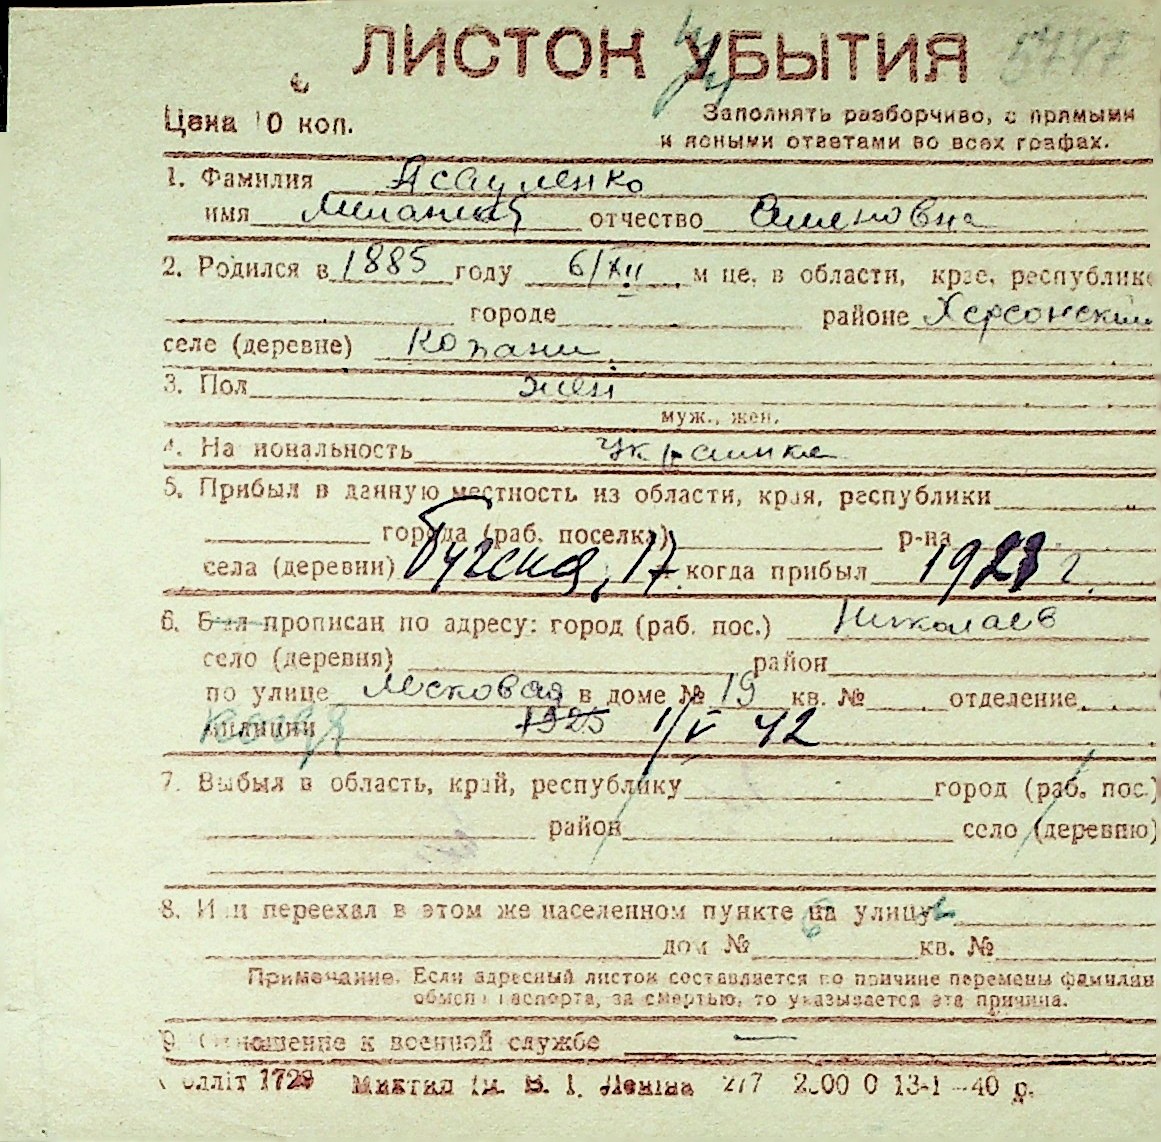 ЛИСТОК УБЫТИЯ 5747
Цена 10 коп.
Заполнять разборчиво, с прямыми
и ясными ответами во всех графах.
1. Фамилия Асауленко
имя отчество Семеновна
2. Родился в 1885 году 6/XII м це, в области, крае, республике
городе районе Херсонский
селе (деревне) Копани
3. Пол жен
муж., жен.
4. На иональность Украинка
5. Прибыл в данную местность из области, края, республики
города (раб. поселка) р-на
села (деревни) 17 когда прибыл 1923 г.
6. Был прописан по адресу: город (раб. пос.) Николаев
село (деревня) район
по улице в доме № 19 кв. № отделение
милиции когда 1925 1/V 42
7. Выбыл в область, край, республику город (раб. пос.)
район село (деревню)
8. Или переехал в этом же населенном пункте на улицу
дом № кв. №
Примечание. Если адресный листок составляется по причине перемены фамилии
обмен паспорта, за смертью, то указывается эта причина.
9. Отношение к военной службе —
олліт 1729 Миктип ім. В. І. Леніна 2/7 13-I—40 р.